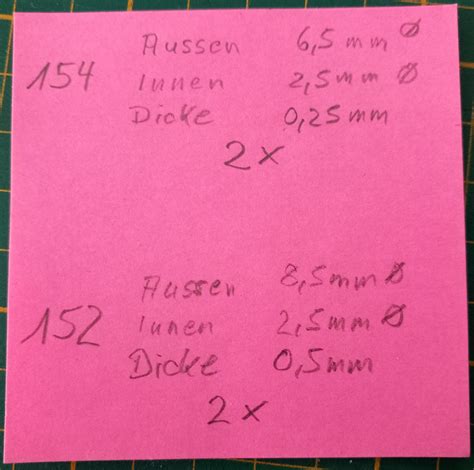 Aussen 6,5 mm Ø
154 Innen 2,5 mm Ø
Dicke 0,25 mm
2x
Aussen 8,5 mm Ø
152 Innen 2,5 mm Ø
Dicke 0,5 mm
2x